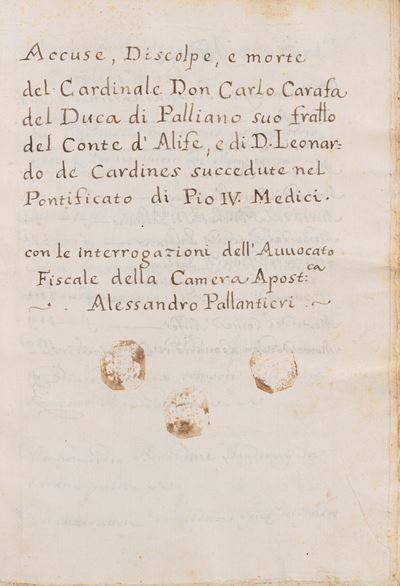 Accuse, Discolpe, e morte
del Cardinale Don Carlo Carafa
del Duca di Palliano suo fratło
del Conte d'Alife, e di D. Leonar=
do de Cardines succedute nel
Pontificato di Pio IV. Medici.
con le interrogationi dell'Auuocato
Fiscale della Camera Apost:ca
~ . Alessandro Pallantieri . ~